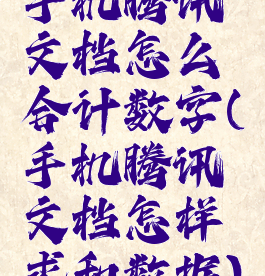 手机腾讯
文档怎么
合计数字(
手机腾讯
文档怎样
求和数据)